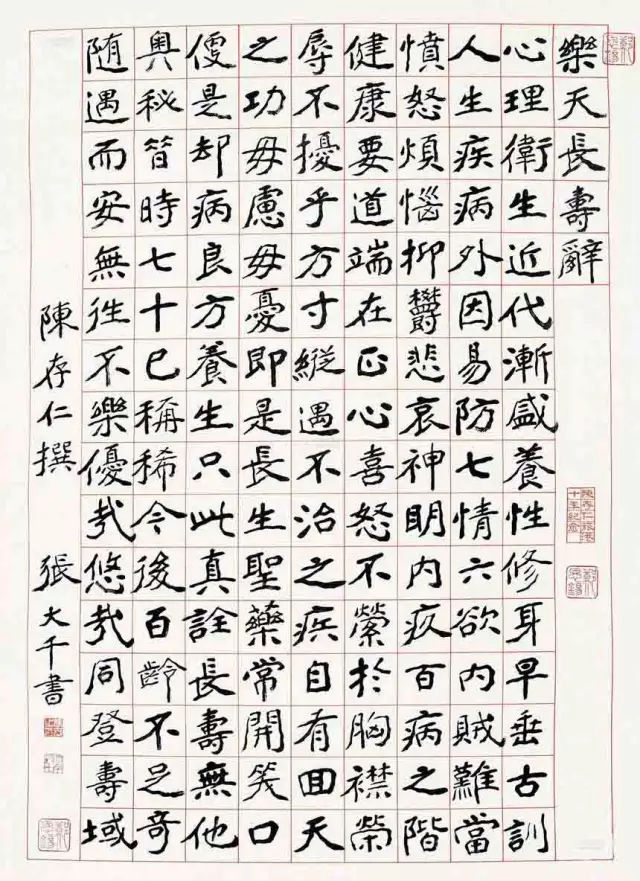 樂天長壽辭
心理衛生近代漸盛養性修身早垂古訓
人生疾病外因易防七情六欲內賊難當
憤怒煩惱抑鬱悲哀神明內疚百病之階
健康要道端在正心喜怒不縈於胸襟榮
辱不擾乎方寸縱遇不治之疾自有回天
之功毋慮毋憂即是長生聖藥常開笑口
便是却病良方養生只此真詮長壽無他
奥秘昔時七十已稱稀今後百齡不足奇
隨遇而安無往不樂優哉悠哉同登壽域
陳存仁撰 張大千書